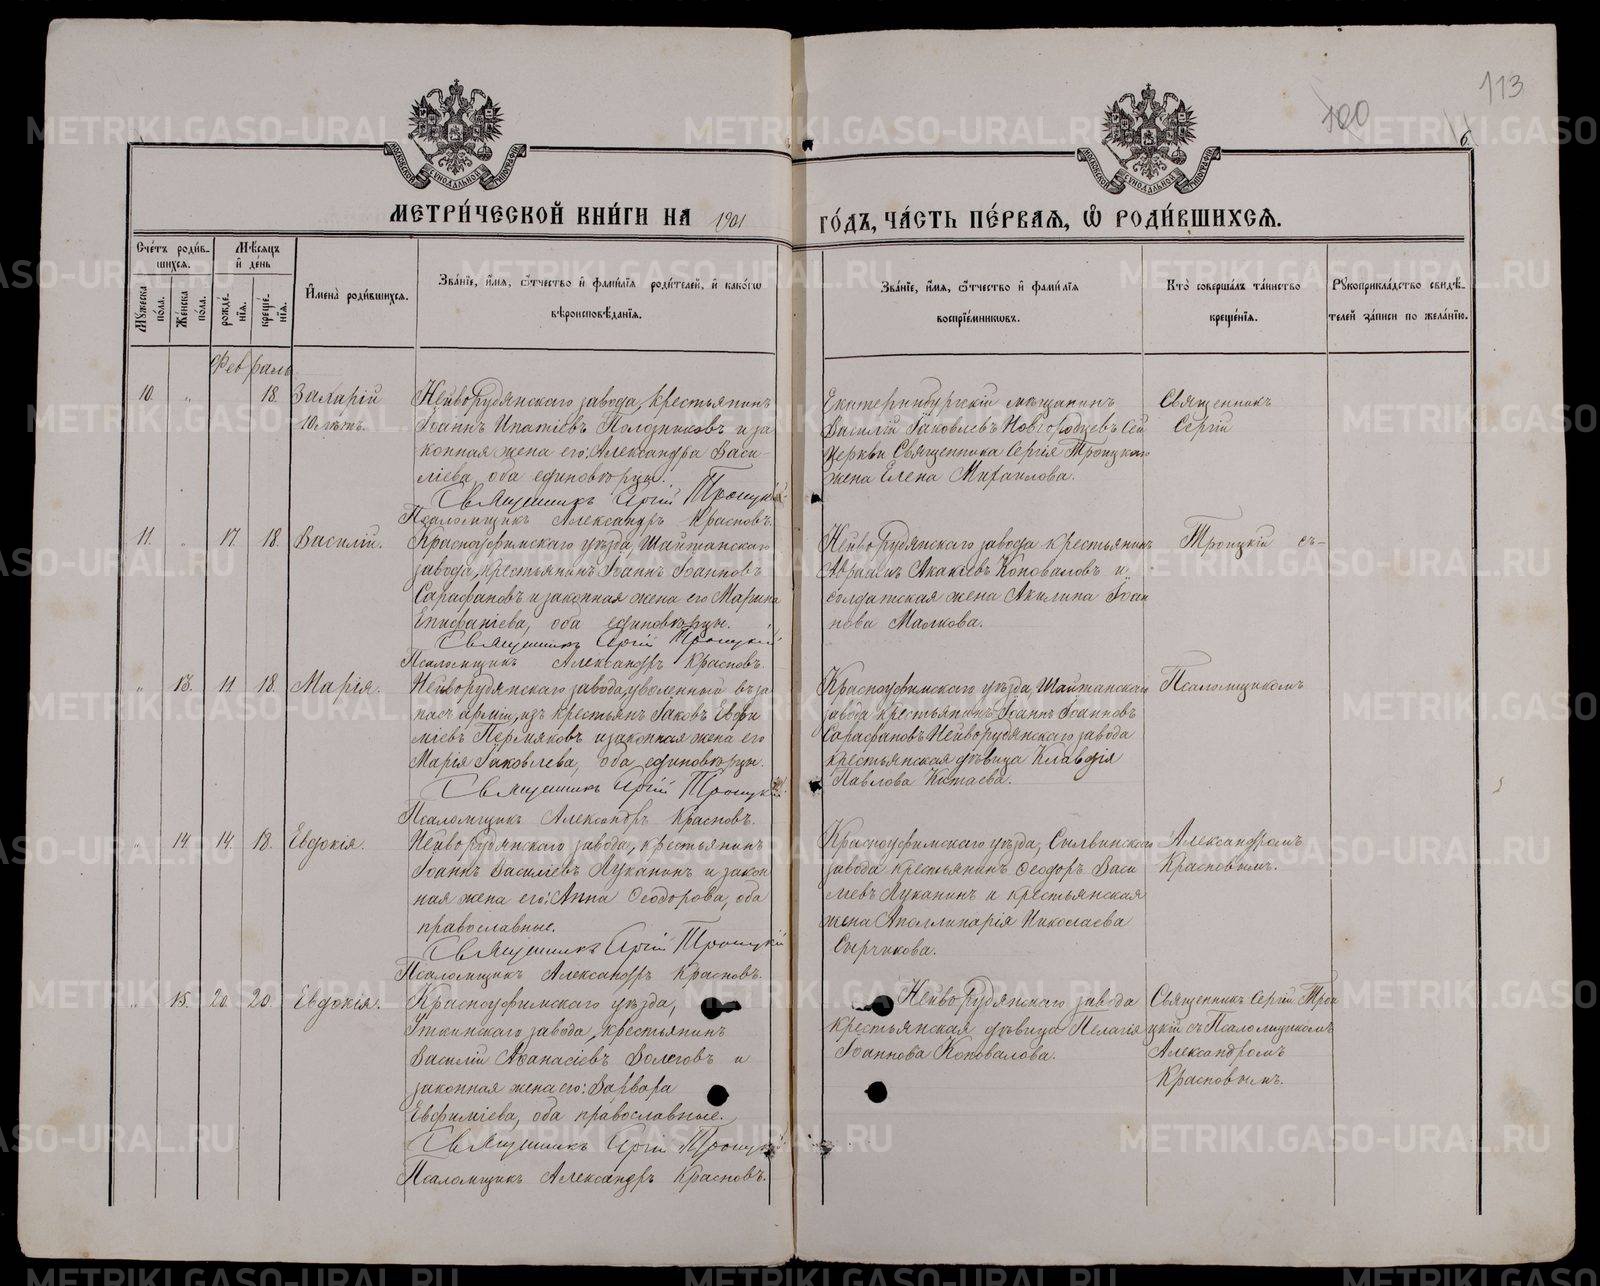 113
100
6
МОСКОВСКОЙ СѴНОДАЛЬНОЙ ТИПОГРАФІИ
МОСКОВСКОЙ СѴНОДАЛЬНОЙ ТИПОГРАФІИ
МЕТРИ́ЧЕСКОЙ КНИ́ГИ НА 1901 ГО́ДЪ, ЧА́СТЬ ПЕ́РВАѦ, Ѽ РОДИ́ВШИХСѦ.
Сче́тъ роди́вшихсѧ.
Мꙋ́жеска по́ла.
Же́нска по́ла.
Мѣ́сѧцъ и҆ де́нь
рожде́нїѧ.
креще́нїѧ.
И҆мена̀ роди́вшихсѧ.
Зва́нїе, и҆́мѧ, ѻ҆́тчество и҆ фами́лїѧ роди́телей, и҆ како́гѡ
вѣроисповѣ́данїѧ.
Зва́нїе, и҆́мѧ, ѻ҆́тчество и҆ фами́лїѧ
воспрїе́мникѡвъ.
Кто̀ соверша́лъ та́инство
креще́нїѧ.
Рꙋкоприкла́дство свидѣ́телей за́писи по жела́нїю.
Февраль
10. " 18. Захарій
10 лѣтъ.
Нейворудянскаго завода, крестьянинъ
Іоаннъ Ипатіевъ Ползниковъ и за
конная жена его: Александра Васи-
ліева, оба единовѣрцы.
Священникъ Сергій Троицкій
Псаломщикъ Александръ Красновъ.
Екатеринбургскій мѣщанинъ
Василій Іаковлевъ Новгородцевъ Сей
церкви Священника Сергія Троицкаго
жена Елена Михаилова.
Священникъ
Сергій
11. " 17 18. Василій.
Красноуфимскаго уѣзда, Шайтанскаго
завода, крестьянинъ Іоаннъ Іоанновъ
Сарафановъ и законная жена его Марина
Епифаніева, оба единовѣрцы.
Священникъ Сергій Троицкій
Псаломщикъ Александръ Красновъ.
Нейворудянскаго завода крестьянинъ
Авраамъ Акакіевъ Коновалов и
солдатская жена Акилина Іоан
нова Малкова.
Троицкій съ-
" 13. 11 18. Марія.
Нейворудянскаго завода, уволенный въ за
пасъ арміи, изъ крестьянъ Іаковъ Евфи
міевъ Пермяковъ и законная жена его
Марія Іаковлева, оба единовѣрцы.
Священникъ Сергій Троицкій
Псаломщикъ Александръ Красновъ.
Красноуфимскаго уѣзда, Шайтанскаго
завода крестьянинъ Іоаннъ Іоанновъ
Сарафановъ Нейворудянскаго завода
крестьянская дѣвица Клавдія
Павлова Китаева.
Псаломщикомъ
" 14 14. 18. Евдокія.
Нейворудянскаго завода, крестьянинъ
Іоаннъ Василіевъ Луканинъ и закон
ная жена его: Анна Ѳеодорова, оба
православные.
Священникъ Сергій Троицкій
Псаломщикъ Александръ Красновъ.
Красноуфимскаго уѣзда, Сылвинскаго
завода крестьянинъ Ѳеодоръ Васи
ліевъ Луканинъ и крестьянская
жена Аполлинарія Николаева
Сырчикова.
Александромъ
Красновымъ.
" 15. 20. 20. Евдокія.
Красноуфимскаго уѣзда,
Уткинскаго завода, крестьянинъ
Василій Аѳанасіевъ Волеговъ и
законная жена его: Варвара
Евфиміева, оба православные.
Священникъ Сергій Троицкій
Псаломщикъ Александръ Красновъ.
Нейворудянскаго завода
крестьянская дѣвица Пелагія
Іоаннова Коновалова.
Священникъ Сергій Трои
цкій съ Псаломщикомъ
Александромъ
Красновымъ.
METRIKI.GASO-URAL.RU